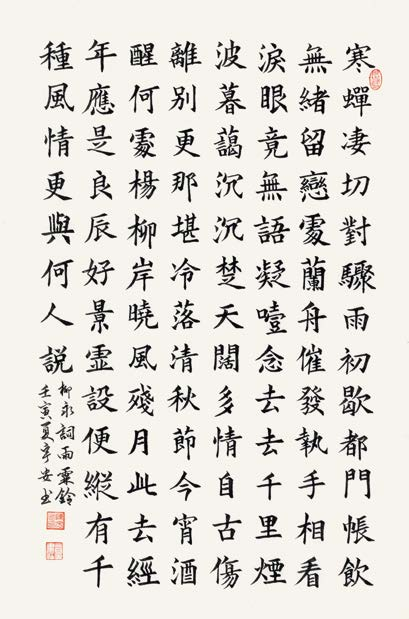 寒蟬凄切對驟雨初歇都門帳飲
無緒留戀處蘭舟催發執手相看
淚眼竟無語凝噎念去去千里煙
波暮藹沉沉楚天闊多情自古傷
離別更那堪冷落清秋節今宵酒
醒何處楊柳岸曉風殘月此去經
年應是良辰好景虛設便縱有千
種風情更與何人説
柳永詞雨霖鈴
壬寅夏安书